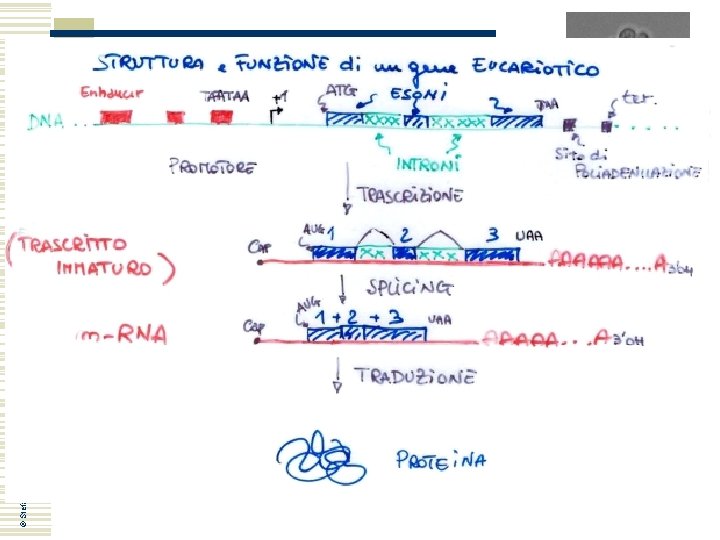 STRUTTURA e FUNZIONE di un gene EUCARIOTICO
Enhancer TAATAA +1 ATG ESONI 2 TAA ter.
DNA ...
PROMOTORE INTRONI Sito di POLIADENILAZIONE
TRASCRIZIONE
(TRASCRITTO IMMATURO) Cap AUG 1 2 3 UAA AAAAAA....A 3'OH
SPLICING
m-RNA Cap AUG 1+2+3 UAA AAAAA...A 3'OH
TRADUZIONE
PROTEINA